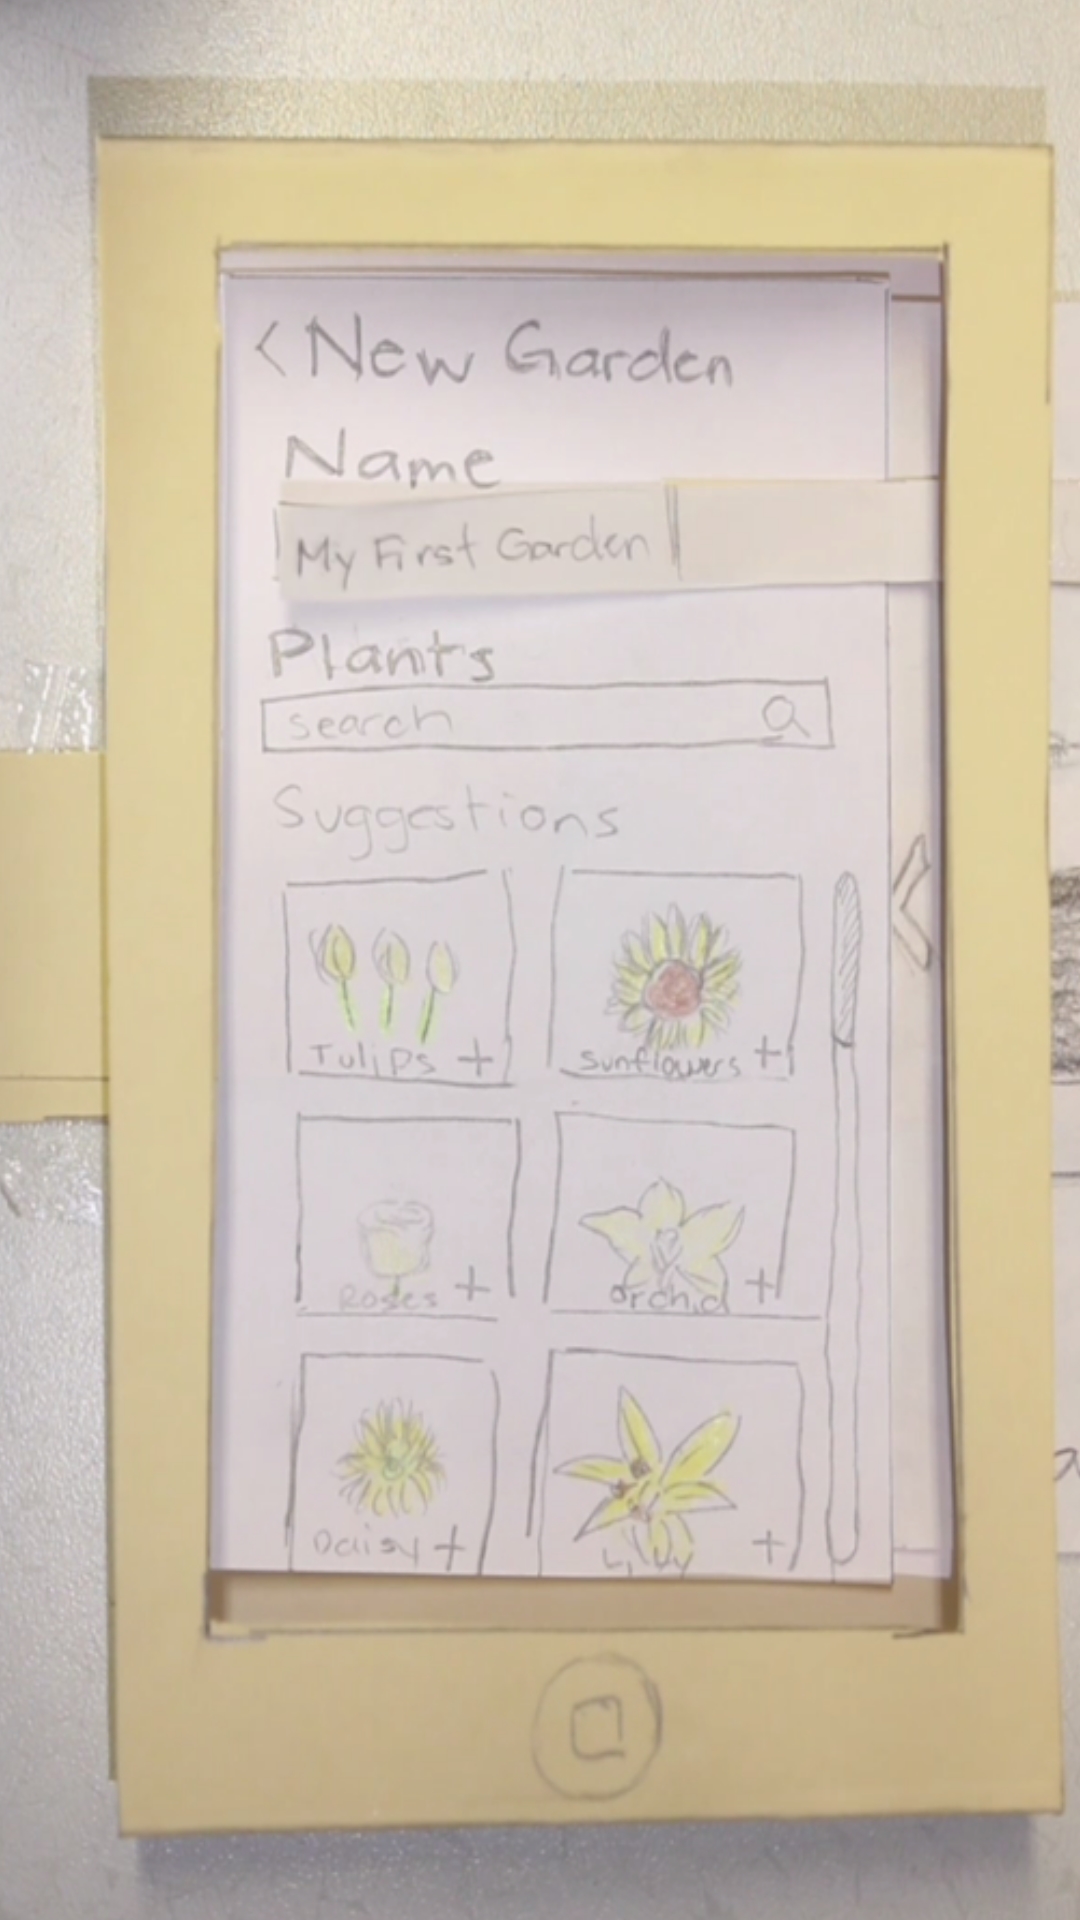 < New Garden
Name
My First Garden
Plants
search
Suggestions
Tulips +
Sunflowers +
Roses +
Orchid +
Daisy +
Lily +